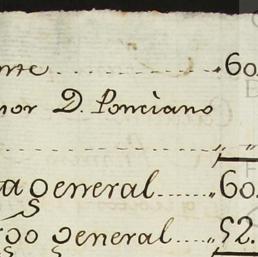 nte........60
nor D. Ponciano
........ " "
ta general......60
go general....52.